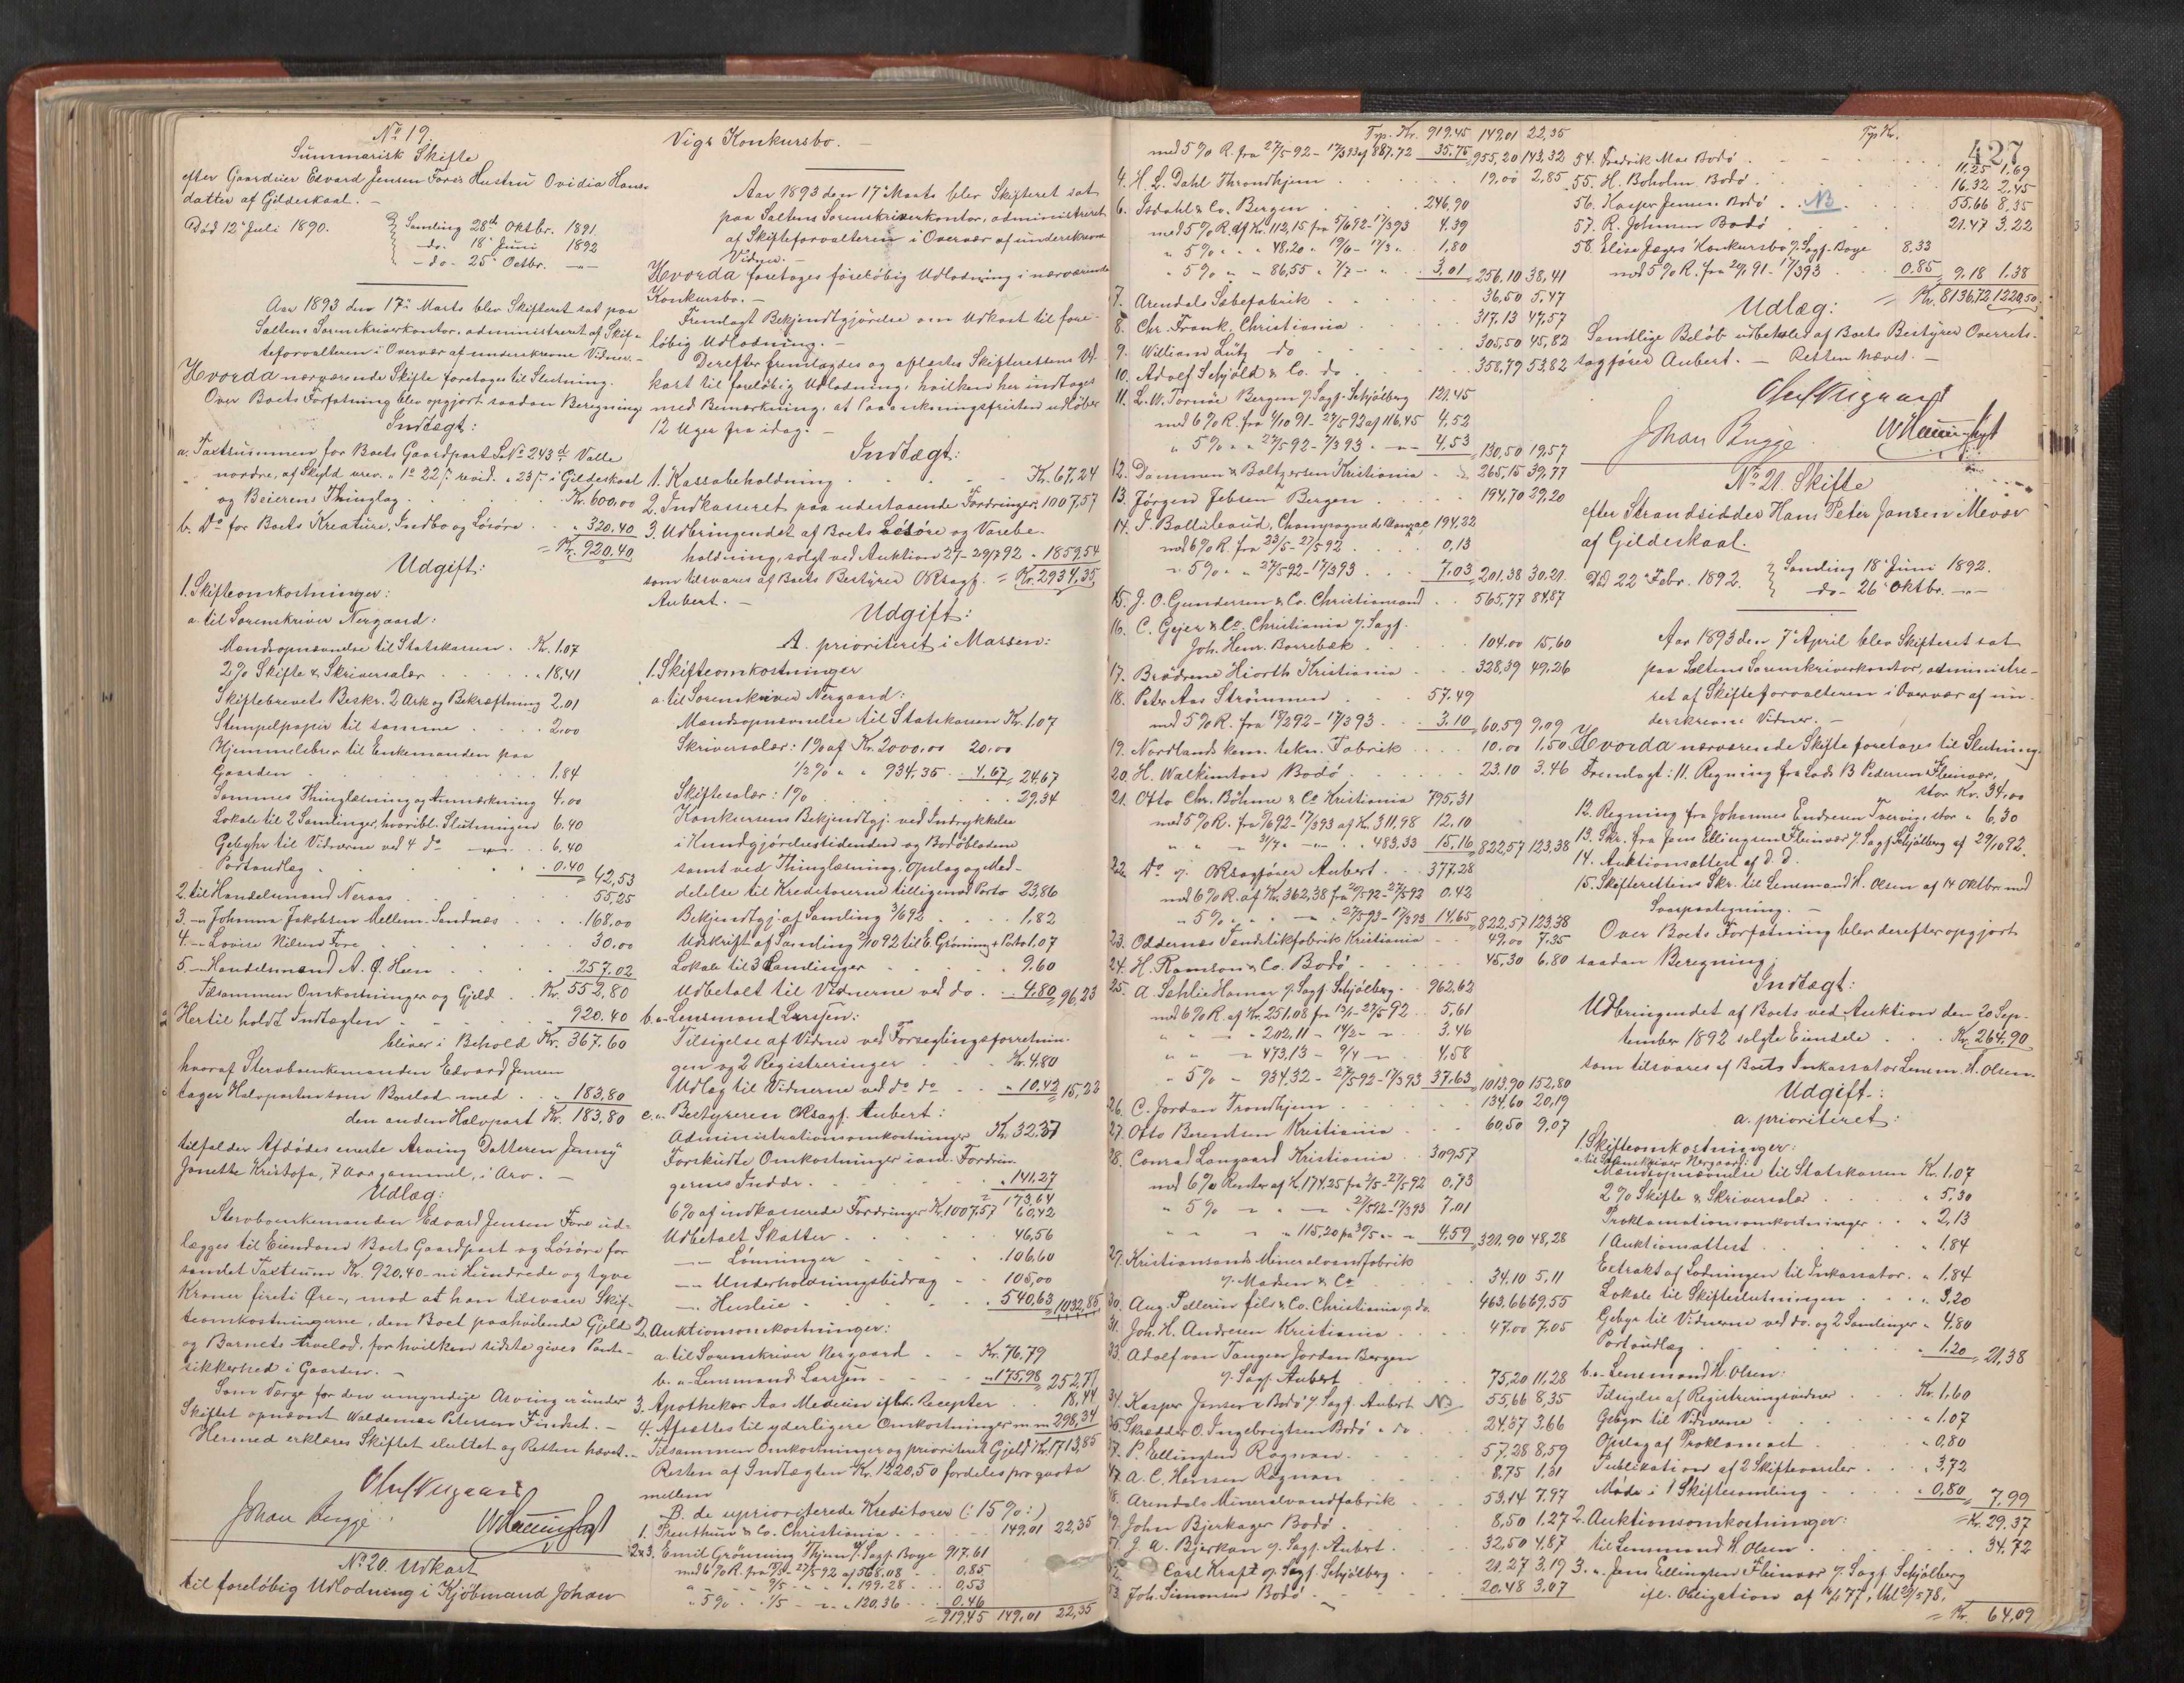 No 19.
Summarisk Skifte
efter Gaardeier Edvard Jensen Fores Hustru Ovidia Hans-
datter af Gildeskaal. –
Død 12te Juli 1890.
Samling 28de Oktbr. 1891.
do. 18de Juni 1892
– do – 25de Octbr. – " –
Aar 1893 den 17de Marts blev Skifteret sat paa
Saltens Sorenskriverkontor, administreret af Skif-
teforvalteren i Overvær af underskrevne Vidner. –
Hvorda nærværende Skifte foretoges til Slutning.
Over Boets Forfatning blev opgjort saadan Beregning
Indtægt:
a. Taxtsummen for Boets Gaardpart L No 243 Valle
nordre, af Skyld urev. revid. i Gildeskaal
og Beierens Thinglag . . . Kr. 600,00
b. Do for Boets Kreature, Indbo og Løsøre . . " 320.40
= Kr. 920.40
Udgift:
1. Skifteomkostninger:
a. til Sorenskriver Nergaard:
Mændsopnævnelse til Statskassen . Kr. 1.07
2% Skifte & Skriversalær . . " 18,41
Skiftebrevets Beskr. 2 Ark og Bekræftning 2,01
Stempelpapir til samme . . 2,00
Hjemmelsbrev til Enkemanden paa
Gaarden . . . 1,84
Sammes Thinglæsning og Anmærkning 4,00
Lokale til 2 Samlinger, hvoribl. Slutningen 6.40
Gebyhr til Vidnerne ved 4 do – " – . 6,40
Portoudlæg . . " 0.40 = 42,53
2. til Handelsmand Neraas . . 55,25
3. – " Johanna Jakobsen Mellem-Sandnæs . . 168,00
4. – " Lovise Nilsen Fore . . 30,00
5. – " Handelsmand A. Q. Hem . . 257.02
Tilsammen Omkostninger og Gjeld . Kr. 552,80
Hertil holdt Indtægten . . 920.40
bliver i Behold Kr. 367.60
hvoraf Stervboenkemanden Edvard Jensen
tager Halvparten som Boslod med . . " 183,80
den anden Halvpart Kr. 183,80
tilfalder Afdødes eneste Arving Datteren Jenny
Jonette Kristofa, 7 Aar gammel, i Arv. –
Udlæg:
Stervboenkemanden Edvard Jensen Fore ud-
lægges til Eiendom Boets Gaardpart og Løsøre for
samlet Taxtsum Kr. 920,40 – ni Hundrede og tyve
Kroner firti Øre –, mod at han tilsvarer Skif-
teomkostningerne, den Boet paahvilende Gjeld
og Barnets Arvelod, for hvilken sidste gives Pante-
sikkerhed i Gaarden. –
Som Værge for den umyndige Arving er under
Skiftet opnævnt Waldemar Petersen Finset. –
Hermed erklæres Skiftet sluttet og Retten hævet. –
Oluf Nergaard
Johan Bugge.
No 20. Udkast
til foreløbig Udlodning i Kjøbmand Johan
Vigs Konkursbo. –
Aar 1893 den 17de Marts blev Skifteret sat
paa Saltens Sorenskriverkontor, administreret
af Skifteforvalteren i Overvær af underskrevne
Vidner. –
Hvorda foretoges foreløbig Udlodning i nærværende
Konkursbo. –
Fremlagt Bekjendtgjørelse om Udkast til fore-
løbig Udlodning. –
Derefter fremlagdes og oplæstes Skifterettens Ud-
kast til foreløbig Udlodning, hvilken her indtages
med Bemærkning, at Paaankningsfristen udløber
12 Uger fra idag. –
Indtægt:
1. Kassabeholdning . . . Kr. 67,24
2. Indkasseret paa udestaaende Fordringer 1007,57
3. Udbringendet af Boets Løsøre og Varebe-
holdning, solgt ved Auktion 27–29/7 92 . 1859,54
som tilsvares af Boets Bestyrer ORsagf. = Kr. 2934,35
Aubert. –
Udgift:
A. prioriteret i Massen:
1. Skifteomkostninger
a. til Sorenskriver Nergaard:
Mændsopnævnelse til Statskassen Kr. 1.07
Skriversalær: 1% af Kr. 2000,00 20,00
1/2 % " " 934,35 . 4,67 = 24.67
Skiftesalær: 1% . . 29.34
Konkursens Bekjendtgj. ved Indrykkelse
i Kundgjørelsestidenden og Bodøbladene
samt ved Thinglæsning, Opslag og Med-
delelse til Kreditorerne tilligemed Porto 23,86
Bekjendtgj. af Samling 3/6 92 . . 1,82
Udskrift af Samling 2/10 92 til E. Grøning + Porto 1.07
Lokale til 3 Samlinger . . 9.60
Udbetalt til Vidnerne ved do . . 4,80 = 96,23
b. " Lensmand Larssen:
Tilsigelse af Vidner ved Forseglingsforretnin-
gen og 2 Registreringer . Kr. 4.80
Udlæg til Vidnerne ved do do . . " 10.42 = 15,22
c. " Bestyreren ORsagf. Aubert:
Administrationsomkostninger Kr. 32.37
Forskudte Omkostninger ianl. Fordrin-
gernes Inddr. . . " 141.27
= 173,64
6% af indkasserede Fordringer Kr. 1007,57 60,42
Udbetalt Skatter . . 46,56
– " – Lønninger . . 106,60
– " – Underholdningsbidrag . . 105,00
– " – Husleie . . 540,63 = 1032,85
2. Auktionsomkostninger:
a. til Sorenskriver Nergaard . . Kr. 76.79
b. " Lensmand Larssen . . " 175,98 = 252,77
3. Apotheker Aas Medicin iflt. Recepter . . 18,44
4. Afsættes til yderligere Omkostninger m. m. 298,34
Tilsammen Omkostninger og prioriteret Gjeld Kr. 1713,85
Resten af Indtægten Kr. 1220,50 fordeles pro quota
mellem
B. de uprioriterede Kreditorer (: 15% :)
1. & Co. Christiania . . 149,01 22,35
2 & 3. Emil Grønning Thjem v. Sagf. Boye 917.61
med 6% R. fra – 27/5 92 af 568,08 . . 0,85
" " " " 199.28 . . 0,53
" 5% " 1/5 – " – " 120,36 . . 0.46
= 919,45 149,01 22,35
Trp. Kr. 919.45 149,01 22,35
med 5% R. fra 27/5 92 – 17/3 93 af 887,72 35,75 = 955,20 143,32
4. H. L. Dahl Throndhjem . . 19,00 2,85
6. Isdahl & Co. Bergen . . 246,90
med 5% R. af Kr. 112,15 fra 5/6 92 – 17/3 93 4.39
" 5% " " 48.20 " 19/6 – 17/3 " . 1,80
" 5% " " 86,55 " 7/7 – " . 3,01 = 256,10 38,41
7. Arendals Sæbefabrik . . 36,50 5.47
8. Chr. Frank, Christiania . . 317.13 47,57
9. William Lütz do . . 305,50 45,82
10. Adolf Schjöld & Co. do . . 358,79 53,82
11. L. W. Tornøe Bergen v. Sagf. Schjølberg 121.45
med 6% R. fra 1/10 91 – 27/5 92 af 116,45 4,52
" 5% " " 27/5 92 – 17/3 93 . – " – 4,53 = 130,50 19,57
12. Dammen & Baltzersen Kristiania . . 265,15 39,77
13. Jørgen Jebsen Bergen . . 194,70 29,20
14. P. Boëllubaud, Champagne de 194,22
med 6% R. fra 23/5 – 27/5 92 . . 0,13
" 5% " " 27/5 92 – 17/3 93 . . 7,03 = 201,38 30.21
15. J. O. Gundersen & Co. Christiansand . . 565,77 84,87
16. C. Gejer & Co Christiania v. Sagf.
Joh. Henr. Borrebæk . . 104,00 15,60
17. Brødrene Hiorth Kristiania . . 328,39 49,26
18. Peter Aas Strømmen . . 57.49
med 5% R. fra 92 – 17/3 93 . . 3.10 = 60,59 9,09
19. Nordlands kem. tekn. Fabrik . . 10.00 1,50
20. H. Walkimton Bodø . . 23.10 3.46
21. Otto Chr. Böhme & Co Kristiania 795,31
med 5% R. fra 92 – 17/3 93 af Kr. 311,98 12,10
" " " – " – . 483.33 15,16 = 822,57 123,38
22. Do v. ORsagfører Aubert . . 377.28
med 6% R. af Kr. 362,38 fra – 27/5 92 0.42
" 5% " " – " 27/5 93 – 17/3 93 14,65 = 822,57 123,38
23. Oddernæs Tændstikfabrik Kristiania . . 49,00 7.35
24. H. Ramson & Co. Bodø . . 45,30 6.80
25. A. Sæhlie Hamar v. Sagf. Schjølberg . . 962,62
med 6% R. af Kr. 251.08 fra – 27/5 92 . . 5,61
" " – " 202,11 – 14/2 – " . 3.46
" " – " 473,13 – 9/4 – " . 4,58
" 5% – 934.32 – 27/5 92 – 17/3 93 37.63 = 1013,90 152,80
26. C. Jordan Trondhjem . . 134,60 20,19
27. Otto Berentsen Kristiania . . 60,50 9,07
28. Conrad Langaard Kristiania . . 309,57
med 6% Renter af K. 174,25 fra 3/5 – 27/5 92 0,73
" 5% – " – 27/5 92 – 17/3 93 7,01
" " " 115,20 fra 30/5 " – " 4,59 = 321,90 48,28
29. Kristiansands Mineralvandfabrik
v. Madsen & Co . . 34.10 5,11
30. Aug. Pellerin fils & Co. Christiania v. do. 463,66 69,55
31. Joh. H. Andresen Kristiania . . 47.00 7,05
33. Adolf von Tangen Jordan Bergen
v. Sagf. Aubert . . 75,20 11,28
34. Kasper Jensen Bodø v. Sagf. Aubert NB 55,66 8,35
35. Skrædder O. Ingebrigtsen Bodø " do . 24.37 3,66
P. Ellingsen Rognan . . 57.28 8,59
A. C. Hansen Rognan . . 8,75 1,31
Arendals Mineralvandfabrik . . 53.14 7.97
John Bjerkager Bodø . . 8,50 1.27
J. A. Bjerkan v. Sagf. Aubert . . 32,50 4.87
Carl Kraft v. Sagf. Schjølberg . . 21.27 3,19
53. Joh. Simonsen Bodø . . 20.48 3.07
427
Trp Kr.
54. Fredrik Moe Bodø . . 11,25 1,69
55. H. Boholm Bodø . . 16,32 2,45
56. Kasper Jensen Bodø . . NB . . 55.66 8,35
57. R. Johnsen Bodø . . 21.47 3,22
58. Elise Jægers Konkursbo v. Sagf. Boye 8.33
med 5% R. fra 91 – 17/3 93 . . 0.85 = 9,18 1.38
= Kr. 8136,72 1220,50
Udlæg:
Samtlige Beløb udbetales af Boets Bestyrer Overrets-
sagfører Aubert. – Retten hævet. –
Oluf Nergaard
Johan Bugge.
No 21. Skifte
efter Strandsidder Hans Peter Jansen Mevær
af Gildeskaal.
Død 22de Febr. 1892.
Samling 18de Juni 1892.
do – 26de Oktbr. – " –
Aar 1893 den 7de April blev Skifteret sat
paa Saltens Sorenskriverkontor, administre-
ret af Skifteforvalteren i Overvær af un-
derskrevne Vidner. –
Hvorda nærværende Skifte foretoges til Slutning.
Fremlagt: 11. Regning fra Lods B Pedersen Fleinvær,
stor Kr. 34,00
12. Regning fra Johannes Endresen Tverviq, stor " 6,30
13. Skr. fra Jens Ellingsen Fleinvær v. Sagf. Schjølberg af 29/10 92.
14. Auktionsattest af d. d.
15. Skifterettens Skr. til Lensmand H. Olsen af 14 Oktbr med
Svarpaategning. –
Over Boets Forfatning blev derefter opgjort
saadan Beregning:
Indtægt:
Udbringendet af Boets ved Auktion den 20 Sep-
tember 1892 solgte Eiendele . . Kr. 264,90
som tilsvares af Boets Inkassator Lensm. H. Olsen.
Udgift:
a. prioriteret:
1. Skifteomkostninger:
a. til Sorenskriver Nergaard:
Mændsopnævnelse til Statskassen Kr. 1.07
2% Skifte & Skriversalær . . " 5,30
Proklamationsomkostninger . . " 2,13
1 Auktionsattest . . " 1,84
Extrakt af Lodningen til Inkassator . " 1,84
Lokale til Skifteslutningen . . " 3,20
Gebyr til Vidnerne ved do. og 2 Samlinger " 4,80
Portoudlæg . . " 1.20 = 21,38
b. " Lensmand H. Olsen:
Tilsigelse af Registreringsvidner . . Kr. 1,60
Gebyr til Vidnerne . . " 1.07
Opslag af Proklamaet . . " 0,80
Publikation af 2 Skiftevarsler . . " 3,72
Møde i 1 Skiftesamling . . " 0,80 = 7,99
= Kr. 29.37
2. Auktionsomkostninger:
til Lensmand H. Olsen . . 34.72
3. " Jens Ellingsen Fleinvær v. Sagf. Schjølberg
ifl. Obligation af 77, thl 78.
= Kr. 64,09